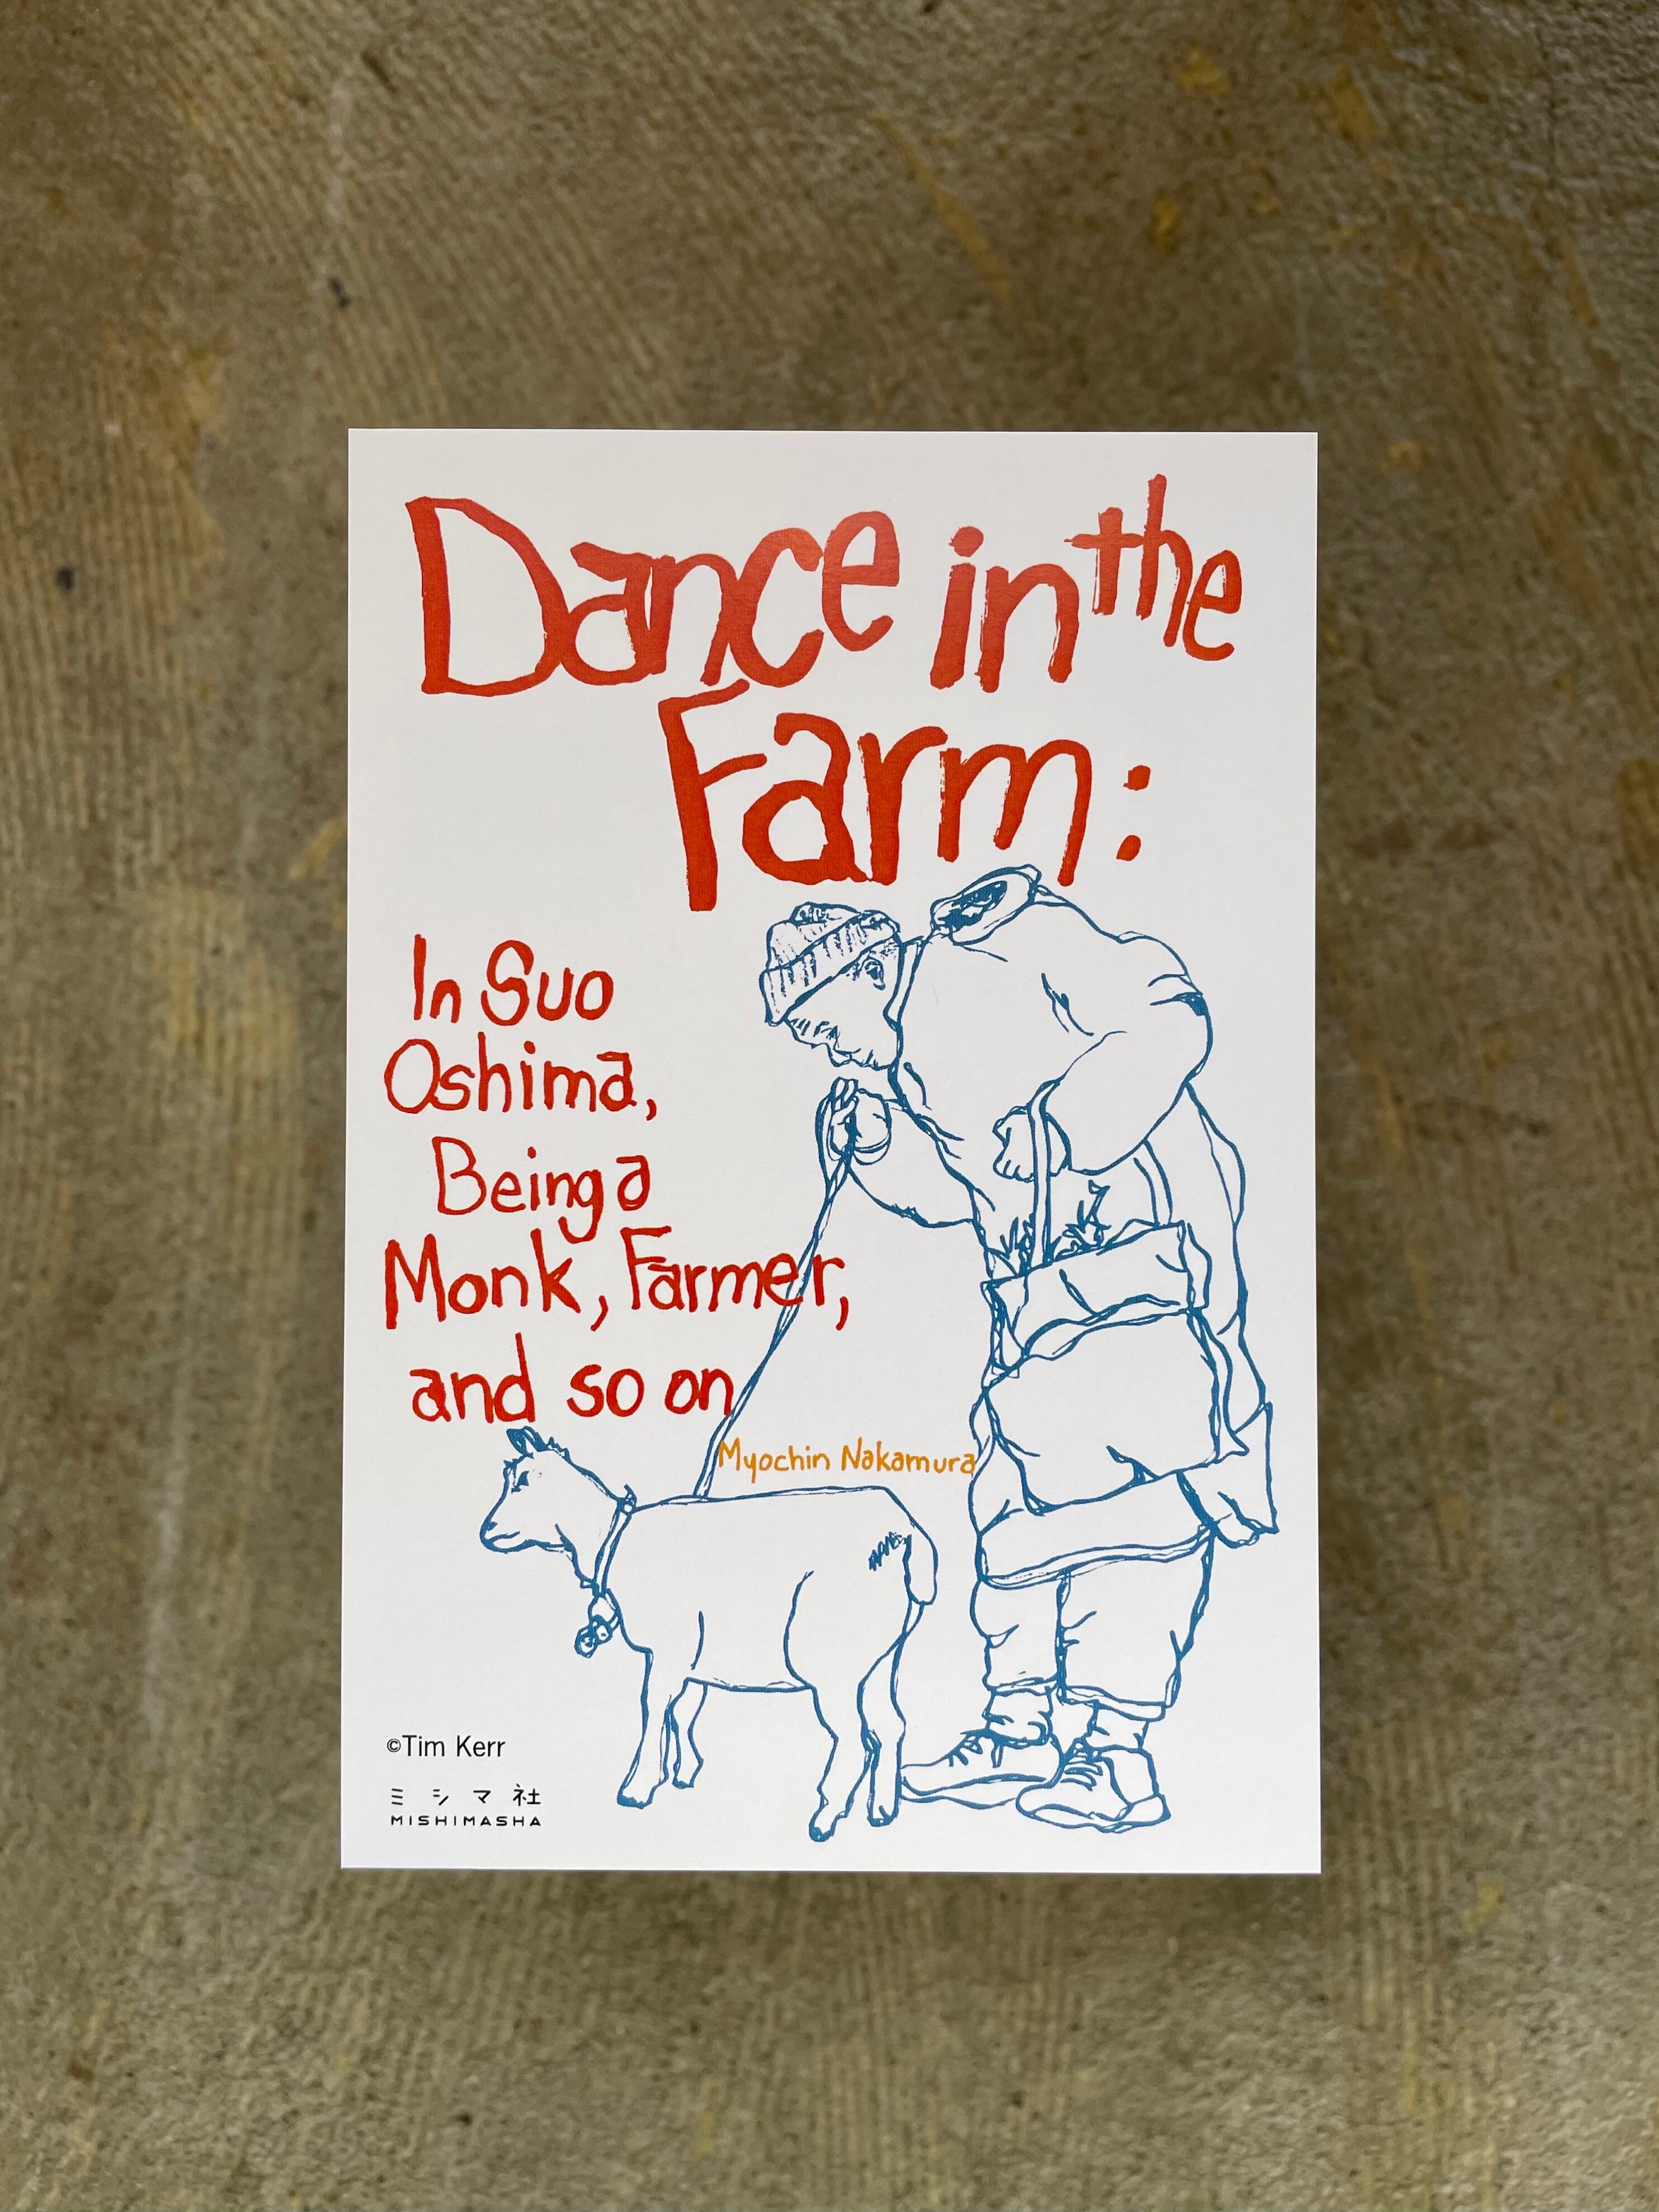 Dance in the
Farm:
In Suo
Oshima,
Being a
Monk, Farmer,
and so on
Myochin Nakamura
©Tim Kerr
ミシマ社
MISHIMASHA